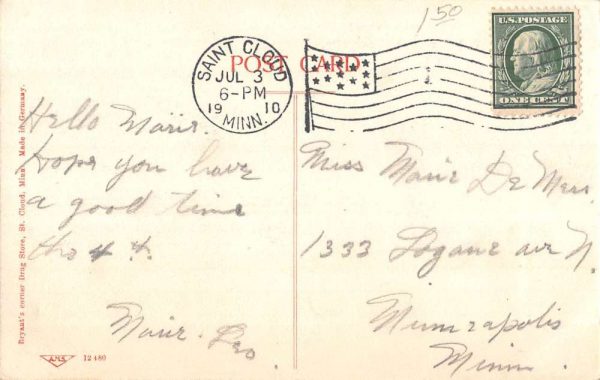 1 50
U.S. POSTAGE
ONE CENT
POST CARD
SAINT CLOUD
JUL 3
6-PM
1910
MINN.
Hello Marie.
Hope you have
a good time
the 4 th.
Marie.
Miss Marie De Mers.
1333 Logan ave N.
Minneapolis
Minn.
Bryant's corner Drug Store, St. Cloud, Minn. Made in Germany.
AMS
12480